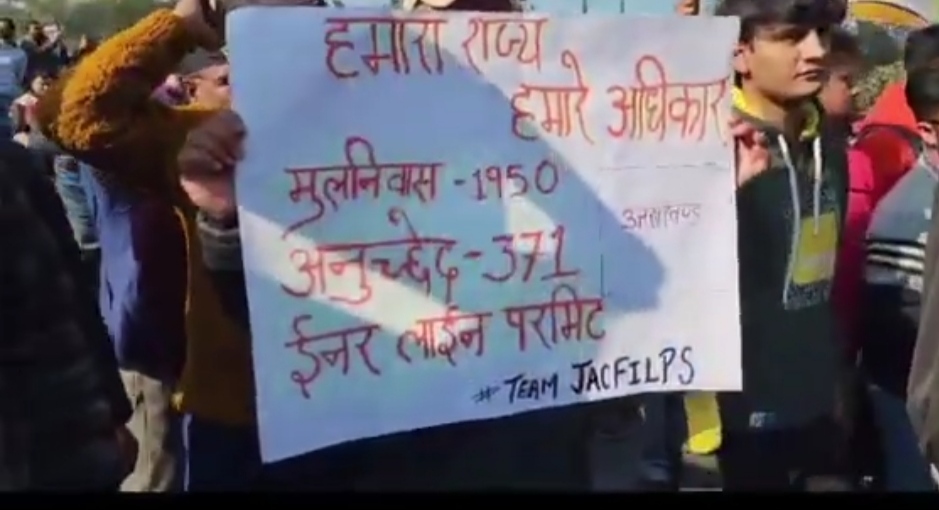 हमारा राज्य
हमारे अधिकार
मुलनिवास - 1950
उत्तराखण्ड
अनुच्छेद - 371
ईनर लाईन परमिट
# TEAM JACFILPS